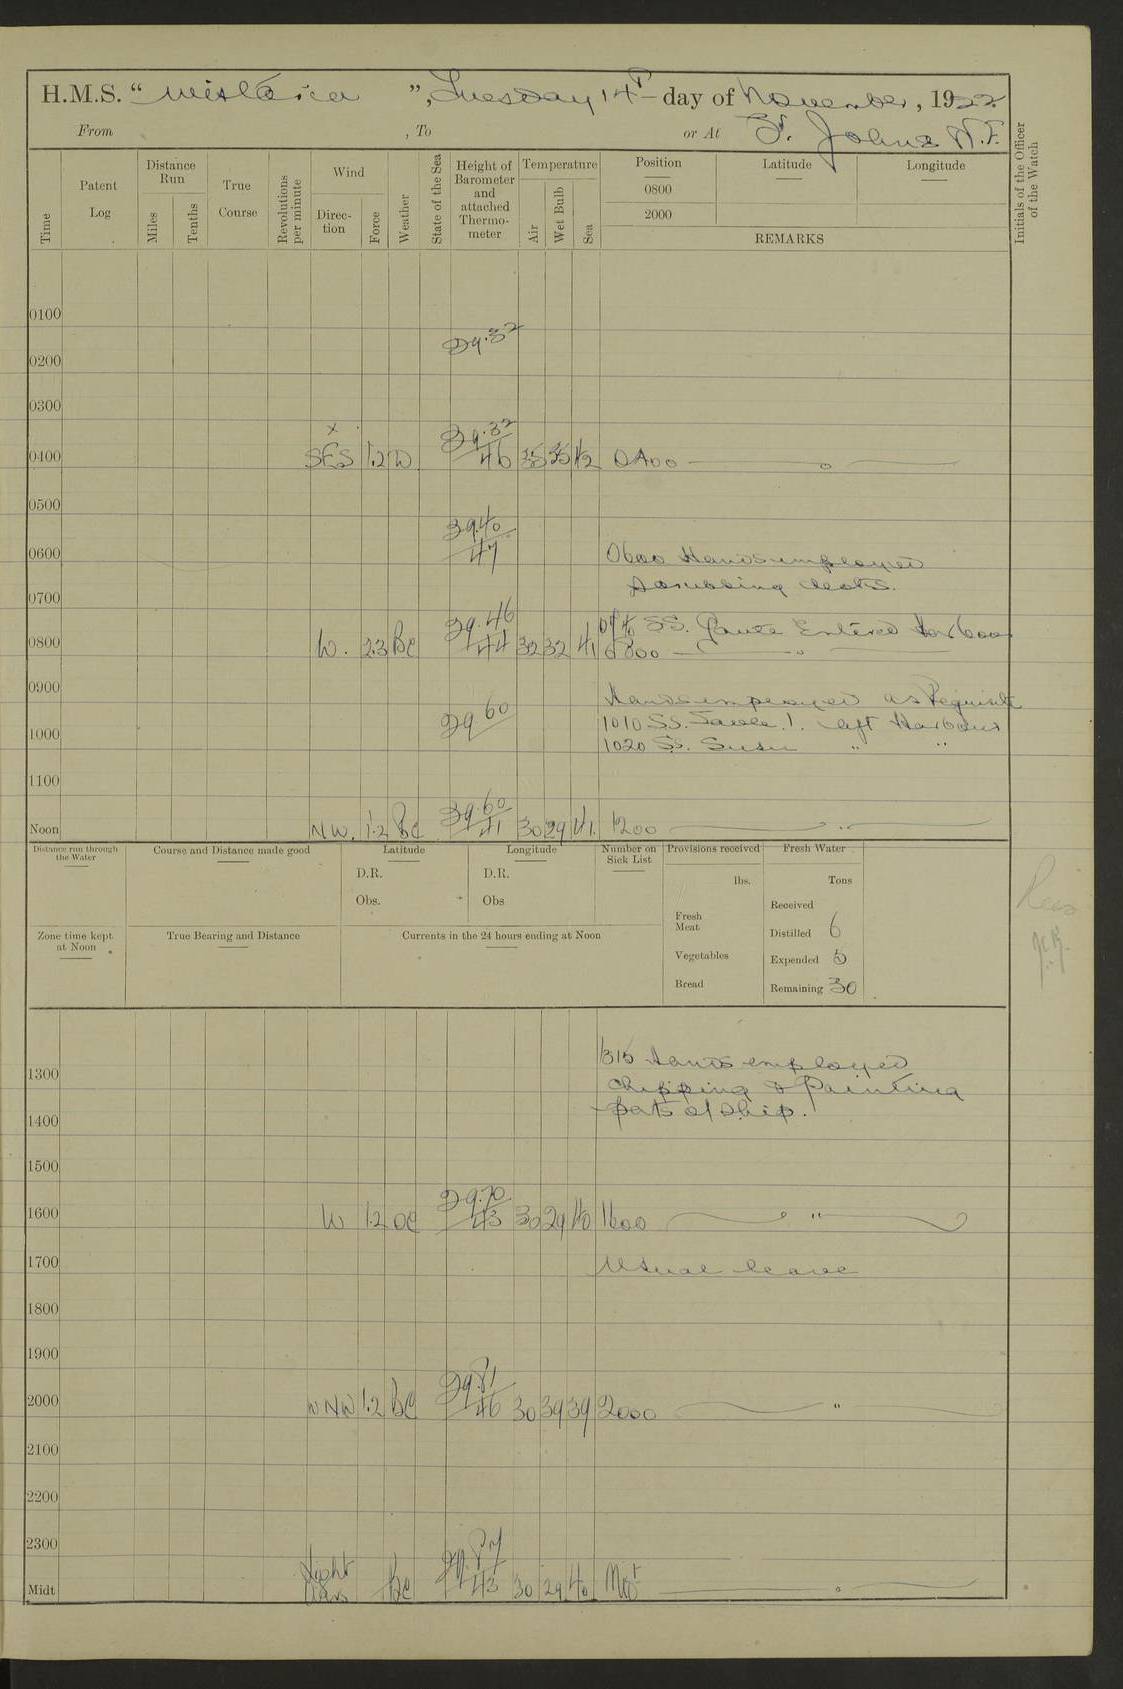 H.M.S. " Wistaria ", Tuesday 14th day of November, 1922
From , To or At St. Johns N.F.
Time
Patent Log
Distance Run
Miles
Tenths
True Course
Revolutions per minute
Wind
Direction
Force
Weather
State of the Sea
Height of Barometer and attached Thermometer
Temperature
Air
Wet Bulb
Sea
Position
0800
2000
Latitude
Longitude
REMARKS
Initials of the Officer of the Watch
0100
29.32
0200
0300
x
29.32
0400 46 35 35 0400
0500
29.40
0600 47 0600 Hands employed
Scrubbing decks.
0700
29.46 SS. Entered Harbour
0800 W. 2.3 BC 44 32 32 41 0800
0900 Hands employed as Requisite
29.60 1010 SS. Sable I. left Harbour
1000 1020 SS. Susu " "
1100
29.60
Noon NW. 1.2 BC 41 30 29 41 1200
Distance run through the Water
Course and Distance made good
Latitude
D.R.
Obs.
Longitude
D.R.
Obs
Number on Sick List
Provisions received
lbs.
Fresh Meat
Vegetables
Bread
Fresh Water
Tons
Received
Distilled 6
Expended 5
Remaining 30
Zone time kept at Noon
True Bearing and Distance
Currents in the 24 hours ending at Noon
1315 Hands employed
1300 Chipping & Painting
1400 parts of Ship.
1500
29.70
1600 W 1.2 OC 43 30 29 40 1600 "
1700 Usual leave
1800
1900
29.81
2000 WNW 1.2 BC 46 30 39 39 2000 "
2100
2200
2300
29.87
Midt Light Vars BC 43 30 29 40 Mdt